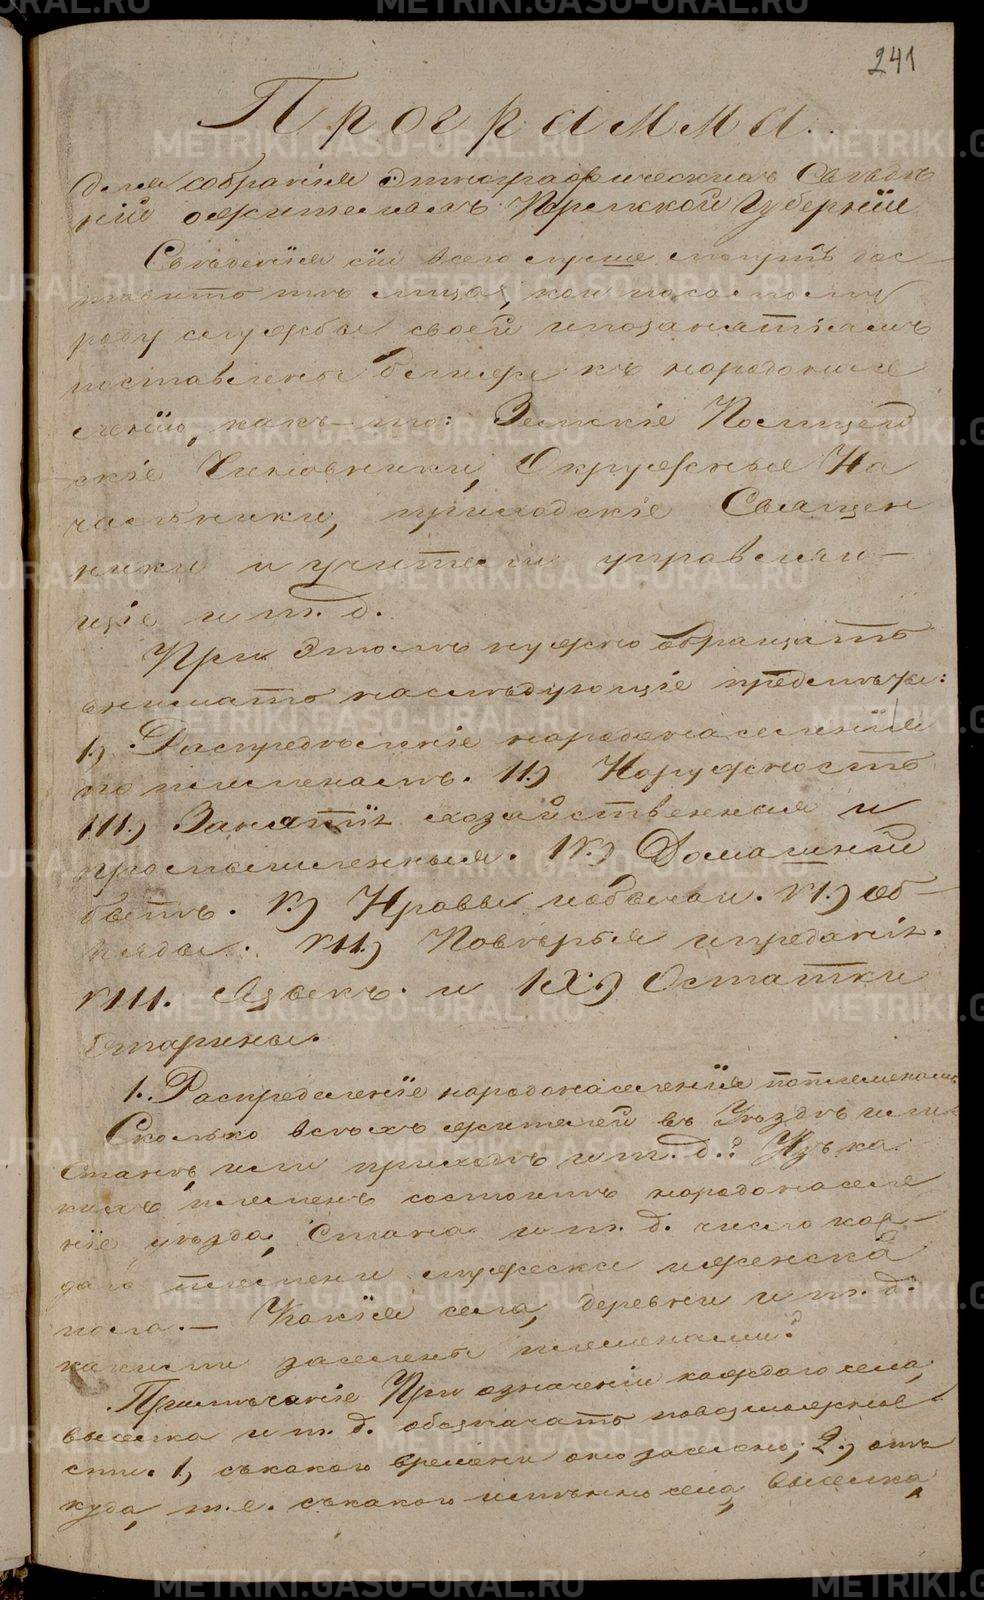 241
Программа.
для собранія Этнографическихъ Свѣдѣ
ній о жителяхъ Пермской Губерніи
Свѣденія сіи всего лучше могутъ дос
тавить тѣ лица, кои по самому
роду службы своей и по занятіямъ
поставлены ближе къ народонасе
ленію, какъ-то: Земскіе Полицей
скіе Чиновники, Окружные На
чальники, приходскіе Священ
ники и учители управляю-
щіе и т. д.
При Этомъ нужно обращать
вниманіе на слѣдующіе предметы:
1.) Распредѣленіе народонаселенія
по племенамъ. II.) Наружность
III.) Занятія хозяйственныя и
промышленныя. IV.) Домашній
бытъ. V.) Нравы и обычаи. VI.) Об-
ряды. VII.) Повѣрья и преданія.
VIII. Языкъ. и IX.) Остатки
Старины.
1. Распределеніе народонаселенія по племенамъ
Сколько всѣхъ жителей въ Уѣздѣ или
Станѣ, или приходѣ и т. д.? Изъ ка
кихъ племенъ состоитъ народонаселе
ніе уѣзда, Стана и т. д. число каж-
даго племени мужеска и женска
пола. — Какія села, деревни и т. д.
какими заселены племенами?
Примѣчаніе При означеніи каждаго села,
выселка и т. д. обозначать по возможно
сти. 1, съ какого времени оно заселено; 2.) отъ
куда, т. е. съ какого имѣнно села, выселка,